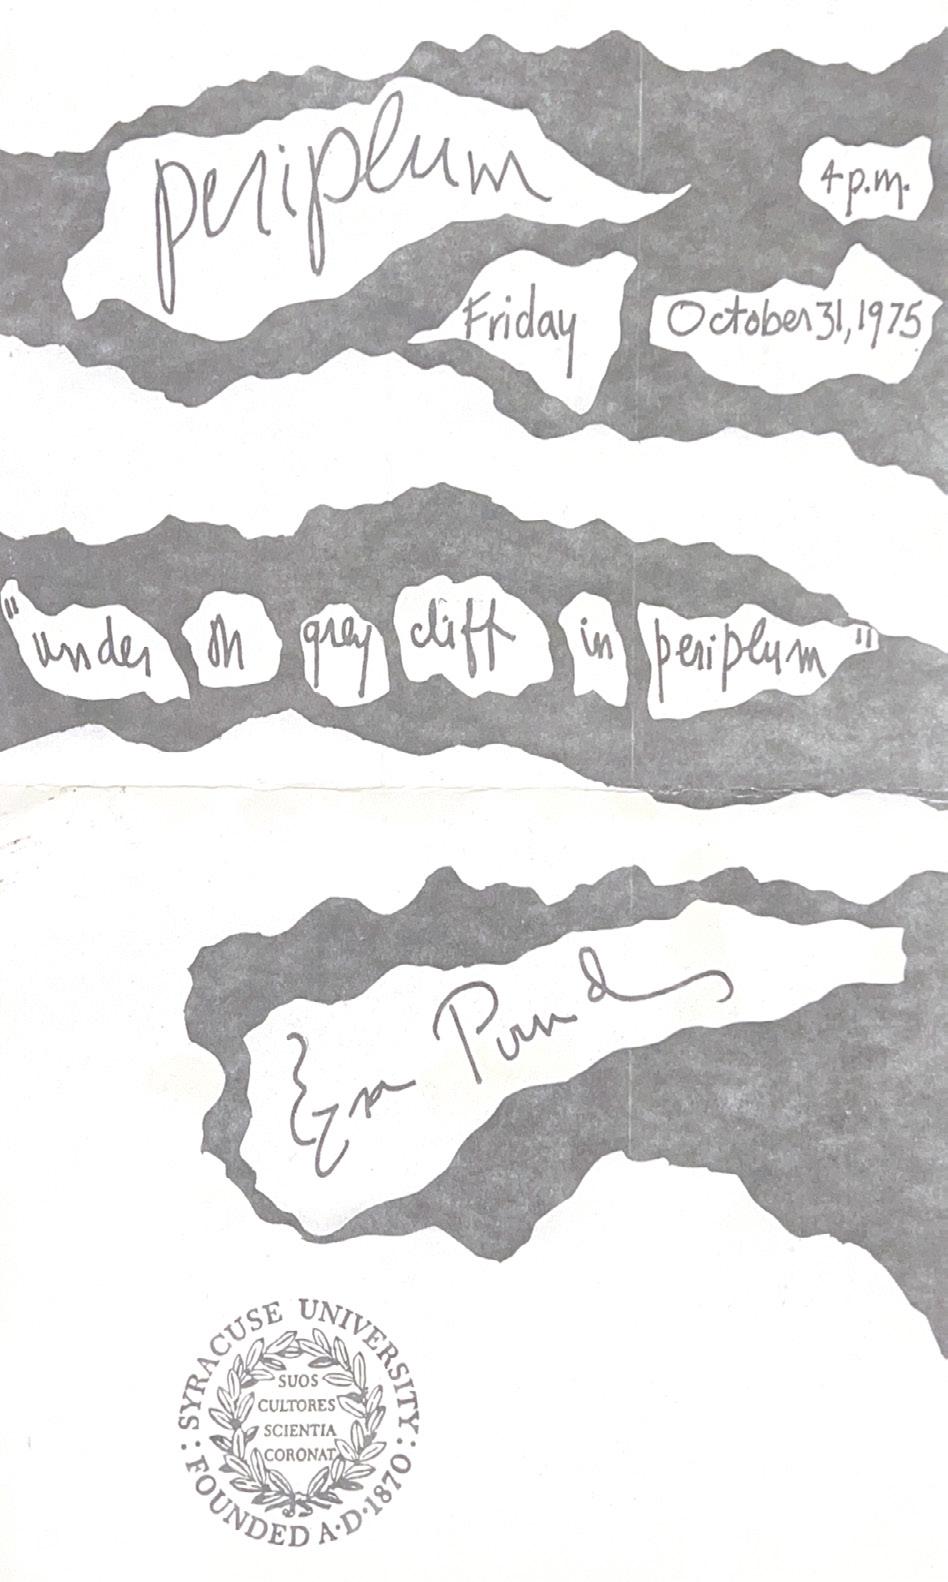 periplum
4 p.m.
Friday October 31, 1975
"under oh grey cliff in periplum"
Ezra Pound
SYRACUSE UNIVERSITY
SUOS
CULTORES
SCIENTIA
CORONAT
FOUNDED A·D·1870